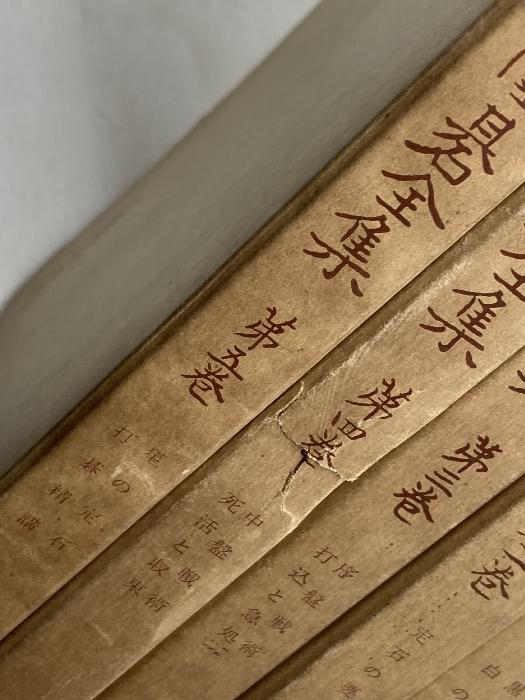 碁全集
第五巻
星の定石
打碁精講
全集
第四巻
中盤戦術
死活と収束
第三巻
序盤戦術
打込と急処
巻
定石の